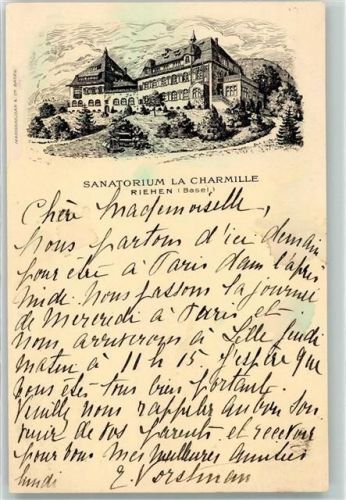 SANATORIUM LA CHARMILLE
RIEHEN (Basel)
Chère Mademoiselle,
Nous partons d'ici demain
pour être à Paris dans l'après
midi. Nous passons la journée
de Mercredi à Paris et
nous arriverons à Lille Jeudi
matin à 11 h 15. J'espère que
vous êtes tous bien portants.
Veuillez nous rappeler au bon sou
venir de vos parents et recevoir
pour vous mes meilleures amitiés
Lundi E. Vorstman